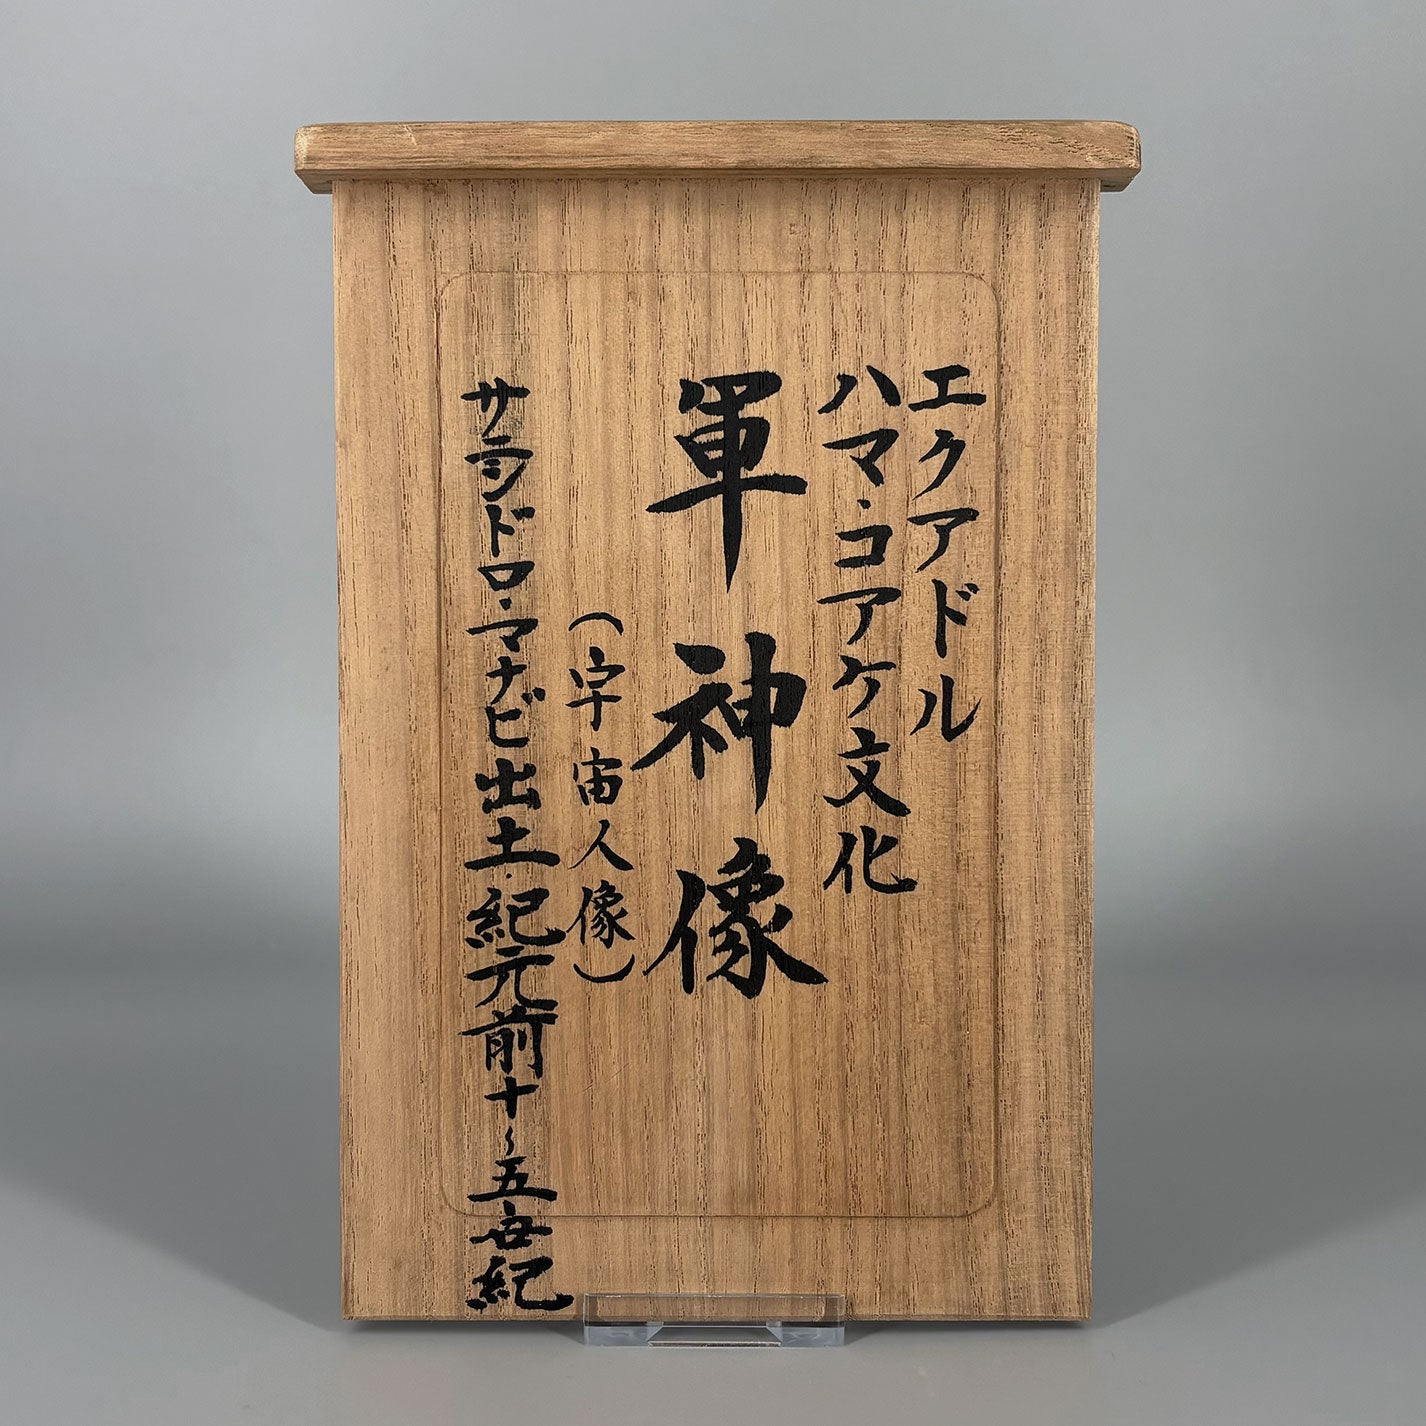 エクアドル
ハマ・コアケ文化
軍神像
(宇宙人像)
サンシドロ・マナビ出土・紀元前十~五世紀